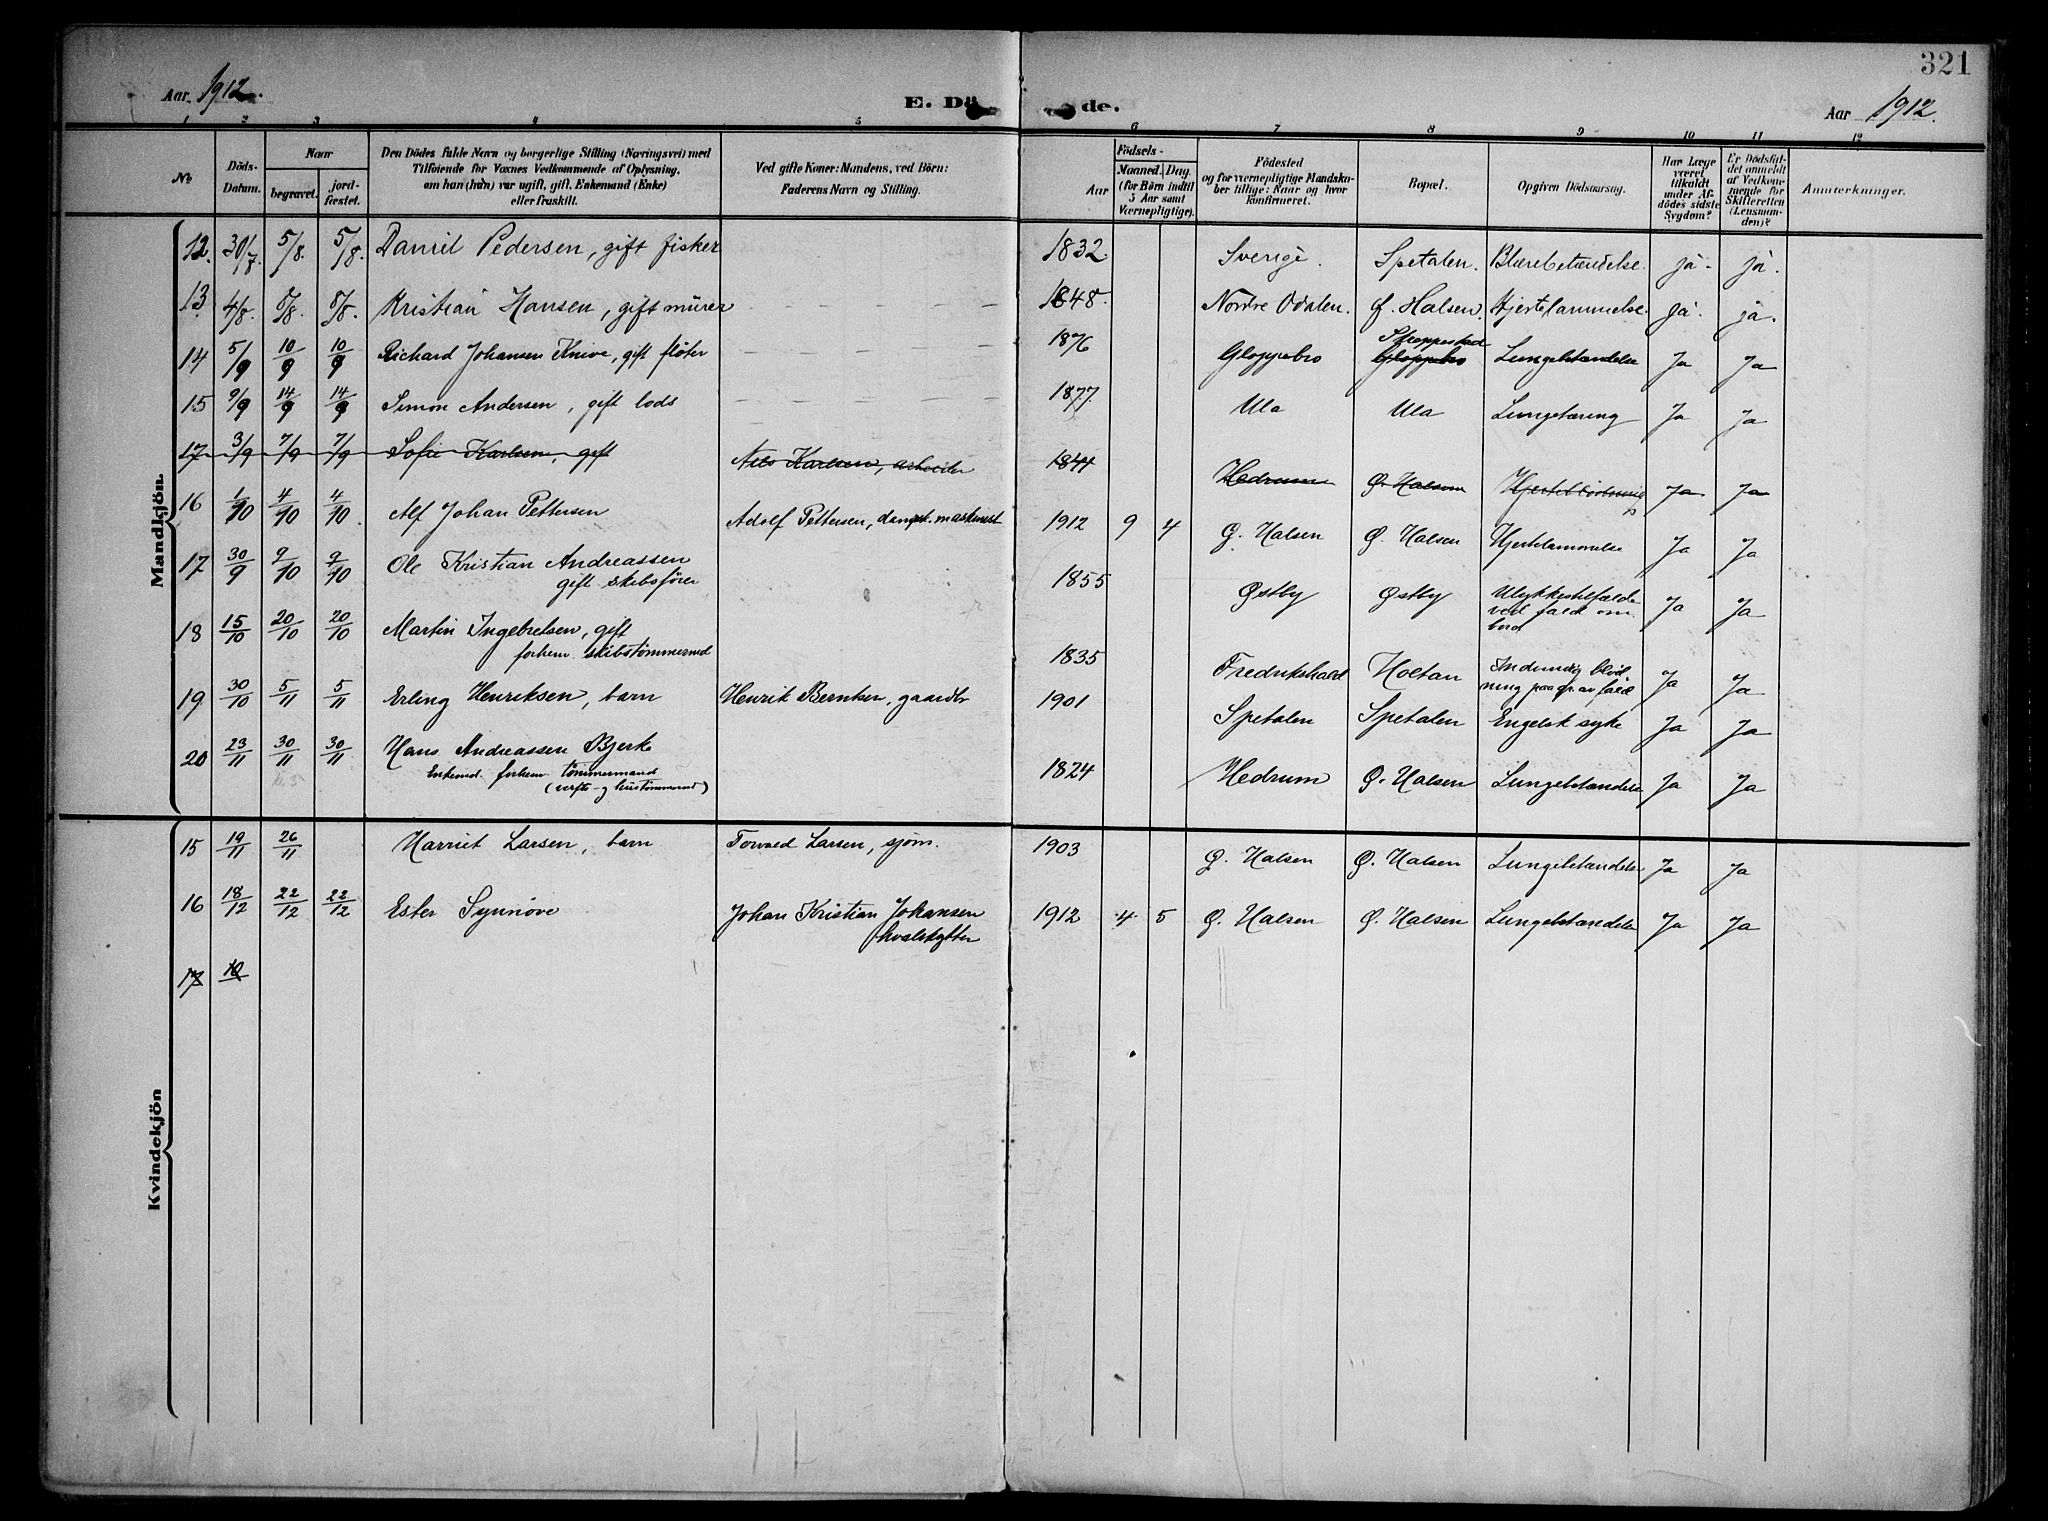 321
Aar 1912.
E. Dö de.
Aar 1912.
1 2 3 4 5 6 7 8 9 10 11 12
No
Döds-Datum.
Naar
begravet. jordfæstet.
Den Dödes fulde Navn og borgerlige Stilling (Næringsvei) med
Tilföiende for Voxnes Vedkommende af Oplysning,
om han (hun) var ugift, gift, Enkemand (Enke)
eller fraskilt.
Ved gifte Koner: Mandens, ved Börn:
Faderens Navn og Stilling.
Födsels-
Aar Maaned. Dag.
(for Börn indtil
5 Aar samt
Værnepligtige).
Födested
og for værnepligtige Mandska-
ber tillige: Naar og hvor
konfirmeret.
Bopæl.
Opgiven Dödsaarsag.
Har Læge
været
tilkaldt
under Af-
dödes sidste
Sygdom?
Er Dödsfal-
det anmeldt
af Vedkom-
mende for
Skifteretten
(Lensman-
den)?
Anmærkninger.
Mandkjön.
12. 30/7. 5/8. 5/8. Daniel Pedersen, gift fisker 1832. Sverige. Spetalen. Blærebetændelse. ja. ja.
13. 4/8. 8/8. 8/8. Kristian Hansen, gift murer 1848. Nordre Odalen. Ø. Halsen. Hjertelammelse. ja. ja.
14 5/9 10/9 10/9 Richard Johansen Knive, gift fløter 1876 Gloppebro Skoppestad Gloppebro Lungebetændelse Ja Ja
15 9/9 14/9 14/9 Simon Andersen, gift lods 1877 Ula Ula Lungetæring Ja Ja
17 3/9 7/9 7/9 Sofie Karlsen, gift Nils Karlsen, arbeider 1844 Hedrum Ø. Halsen Ja Ja
16 1/10 4/10 4/10 Alf Johan Pettersen Adolf Pettersen, dampsk. maskinist 1912 9 4 Ø. Halsen Ø. Halsen Hjertelammelse Ja Ja
17 30/9 9/10 9/10 Ole Kristian Andreassen
gift skibsfører 1855 Østby Østby Ulykkestilfælde
ved fald om
bord Ja Ja
18 15/10 20/10 20/10 Martin Ingebretsen, gift
forhen. skibstømmermd 1835 Fredrikshald Holtan Indvendig blød
ning paa gr. av fald Ja Ja
19 30/10 5/11 5/11 Erling Henriksen, barn Henrik Berntsen, gaardbr 1901 Spetalen Spetalen Engelsk syke Ja Ja
20 23/11 30/11 30/11 Hans Andreassen Bjerke
Enkemd. forhen. tømmermand
(verfts- og hustømmermd) 1824 Hedrum Ø. Halsen Lungebetændelse Ja Ja
kl. 5
Kvindekjön
15 19/11 26/11 Harriet Larsen, barn Torvald Larsen, sjøm. 1903 Ø. Halsen Ø. Halsen Lungebetændelse Ja Ja
16 18/12 22/12 22/12 Ester Synnøve Johan Kristian Johansen
hvalskytter 1912 4 5 Ø. Halsen Ø. Halsen Lungebetændelse Ja Ja
17 10